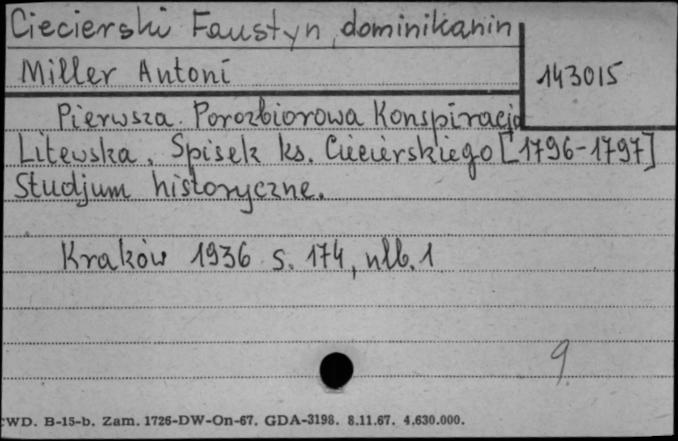 Ciecierski Faustyn, dominikanin
Miller Antoni
143015
Pierwsza Porozbiorowa Konspiracja
Litewska. Spisek ks. Ciecierskiego [1796-1797]
Studjum historyczne.
Kraków 1936 s. 174, nlb. 1
9
CWD. B-15-b. Zam. 1726-DW-On-67. GDA-3198. 8.11.67. 4.630.000.